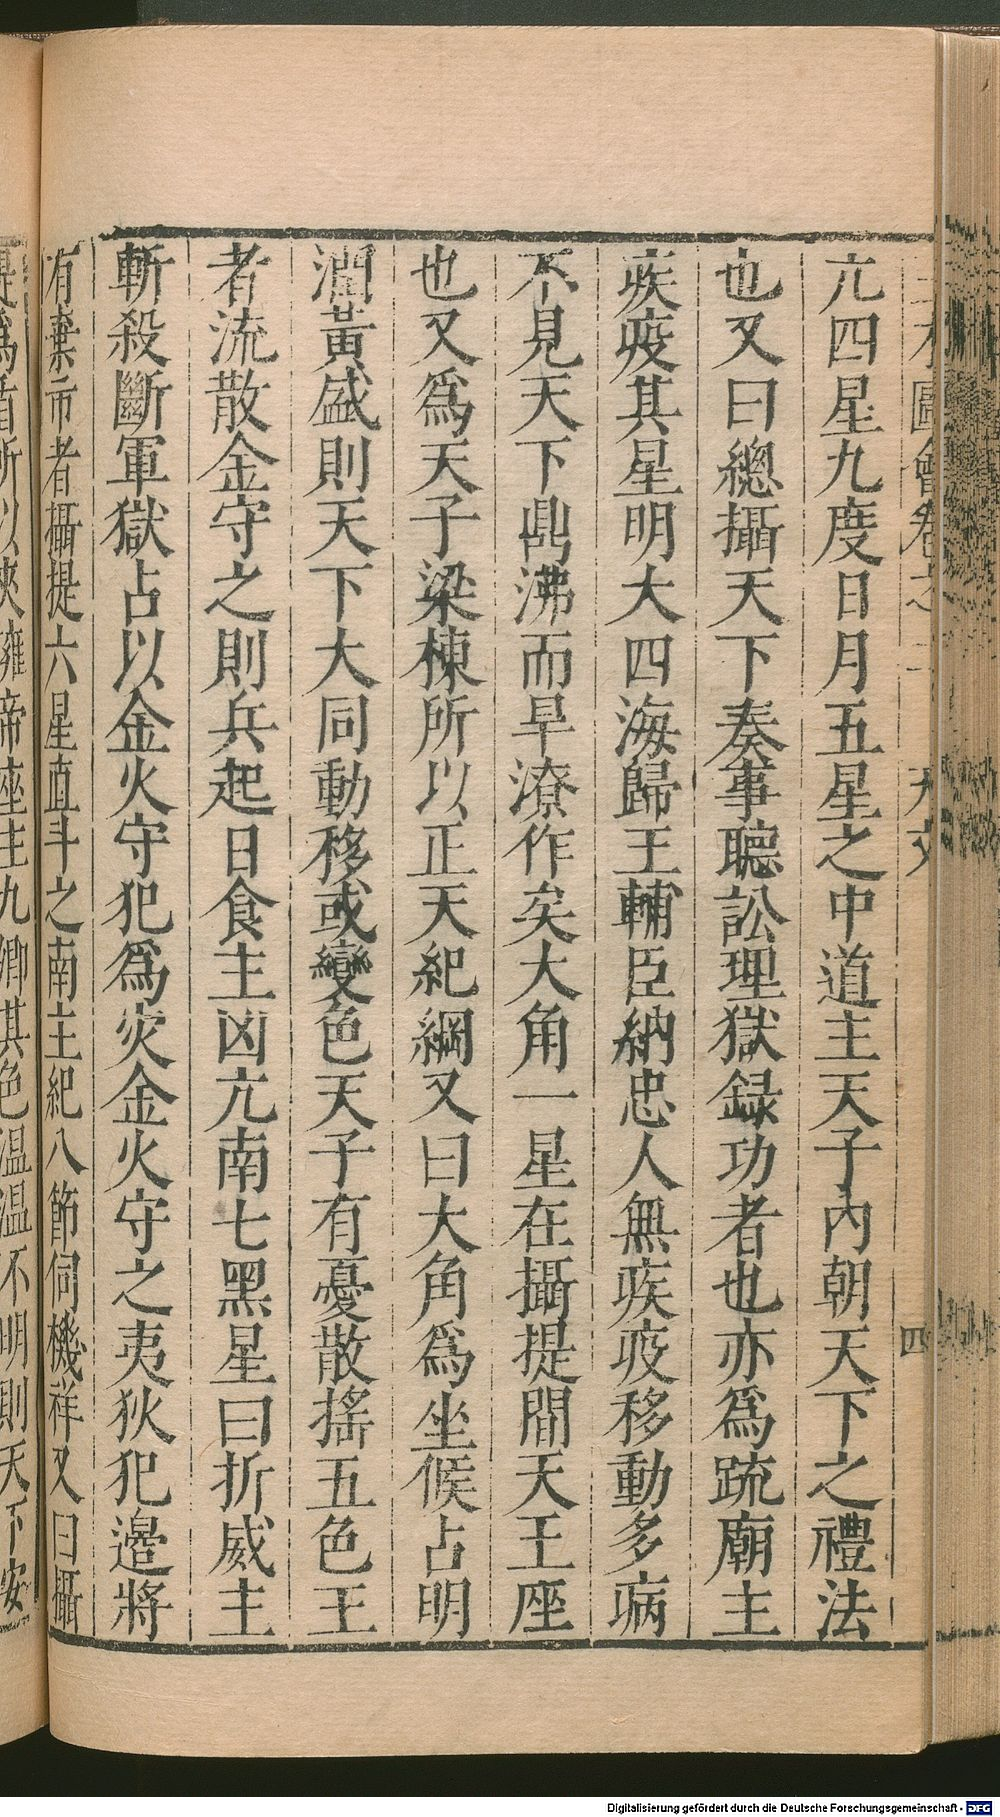 圖會卷之二 天文 四
亢四星九度日月五星之中道主天子內朝天下之禮法
也又曰總攝天下奏事聽訟理獄録功者也亦為䟽廟主
疾疫其星明大四海歸王輔臣納忠人無疾疫移動多病
不見天下鼎沸而旱潦作矣大角一星在攝提間天王座
也又爲天子梁棟所以正天紀綱又曰大角爲坐候占明
潤黃盛則天下大同動移或變色天子有憂散搖五色王
者流散金守之則兵起日食主凶亢南七黑星曰折威主
斬殺斷軍獄占以金火守犯爲灾金火守之夷狄犯邉將
有棄市者攝提六星直斗之南主紀八節伺機祥又曰攝
提爲盾所以夾擁帝座主九卿其色温温不明則天下安
Digitalisierung gefördert durch die Deutsche Forschungsgemeinschaft - DFG